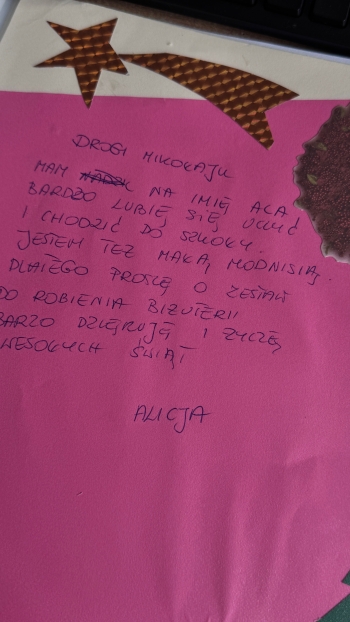 DROGI MIKOŁAJU
MAM NA IMIĘ ALA
BARDZO LUBIĘ SIĘ UCZYĆ
I CHODZIĆ DO SZKOŁY.
JESTEM TEŻ MAŁĄ MODNISIĄ,
DLATEGO PROSZĘ O ZESTAW
DO ROBIENIA BIŻUTERII
BARZO DZIĘKUJĘ I ŻYCZĘ
WESOŁYCH ŚWIĄT
ALICJA